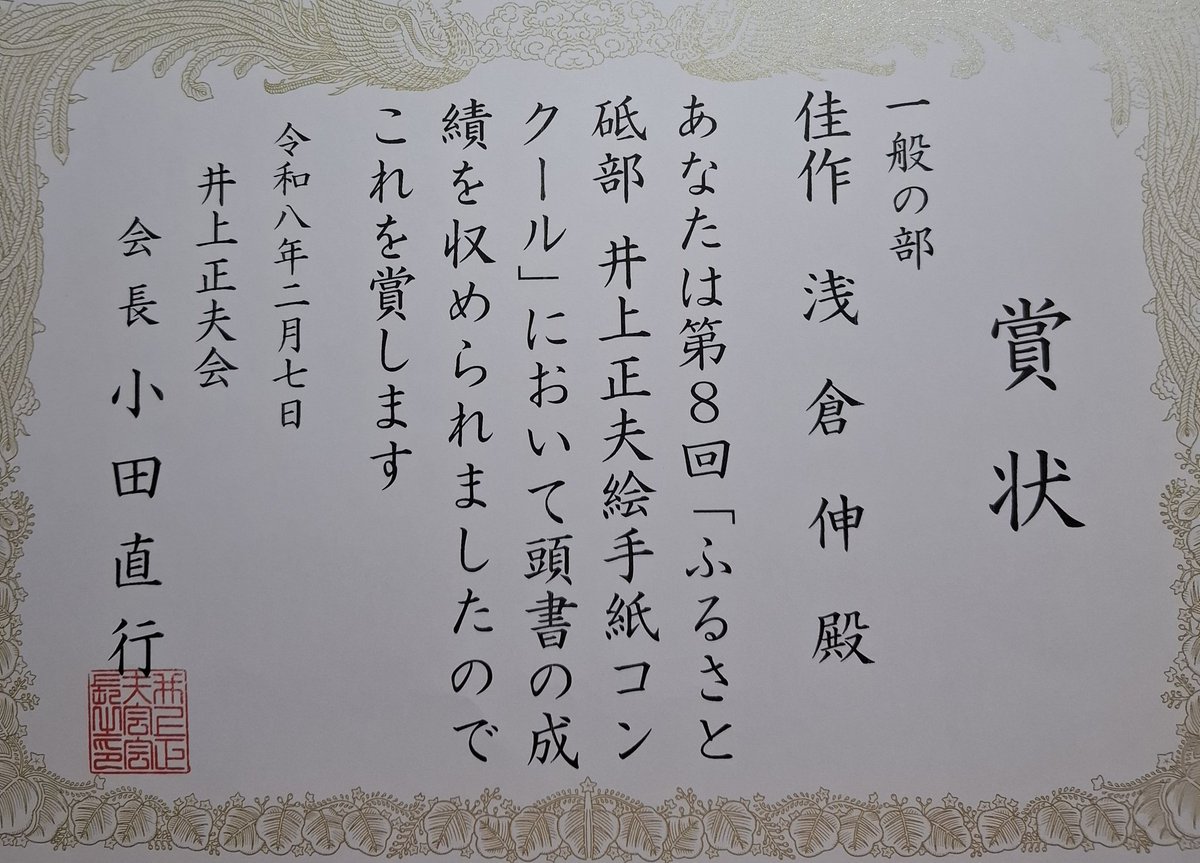 賞状
一般の部
佳作 浅倉伸殿
あなたは第８回「ふるさと
砥部 井上正夫絵手紙コン
クール」において頭書の成
績を収められましたので
これを賞します
令和八年二月七日
井上正夫会
会長 小田直行
井上正
夫会会
長之印